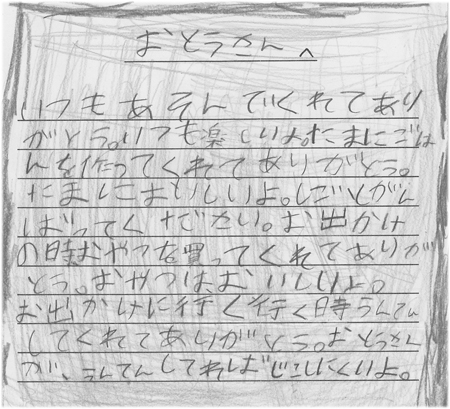 おとうさんへ
いつもあそんでくれてあり
がとう。いつも楽しいよ。たまにごは
んを作ってくれてありがとう。
たまにおいしいよ。しごとがん
ばってください。お出かけ
の時おやつを買ってくれてありが
とう。おやつはおいしいよ。
お出かけに行く行く時うんてん
してくれてありがとう。おとうさん
が、うんてんしてればじこしにくいよ。